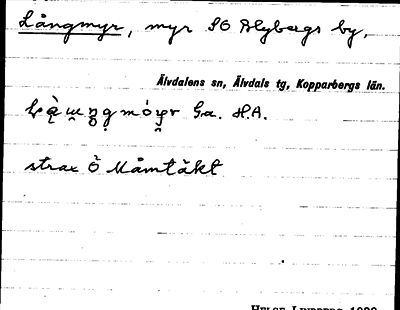 Långmyr, myr SO Blybergs by,
Älvdalens sn, Älvdals tg, Kopparbergs län.
G.a. H.A.
strax Ö Måmtäkt
HELGE LINDBERG 1928